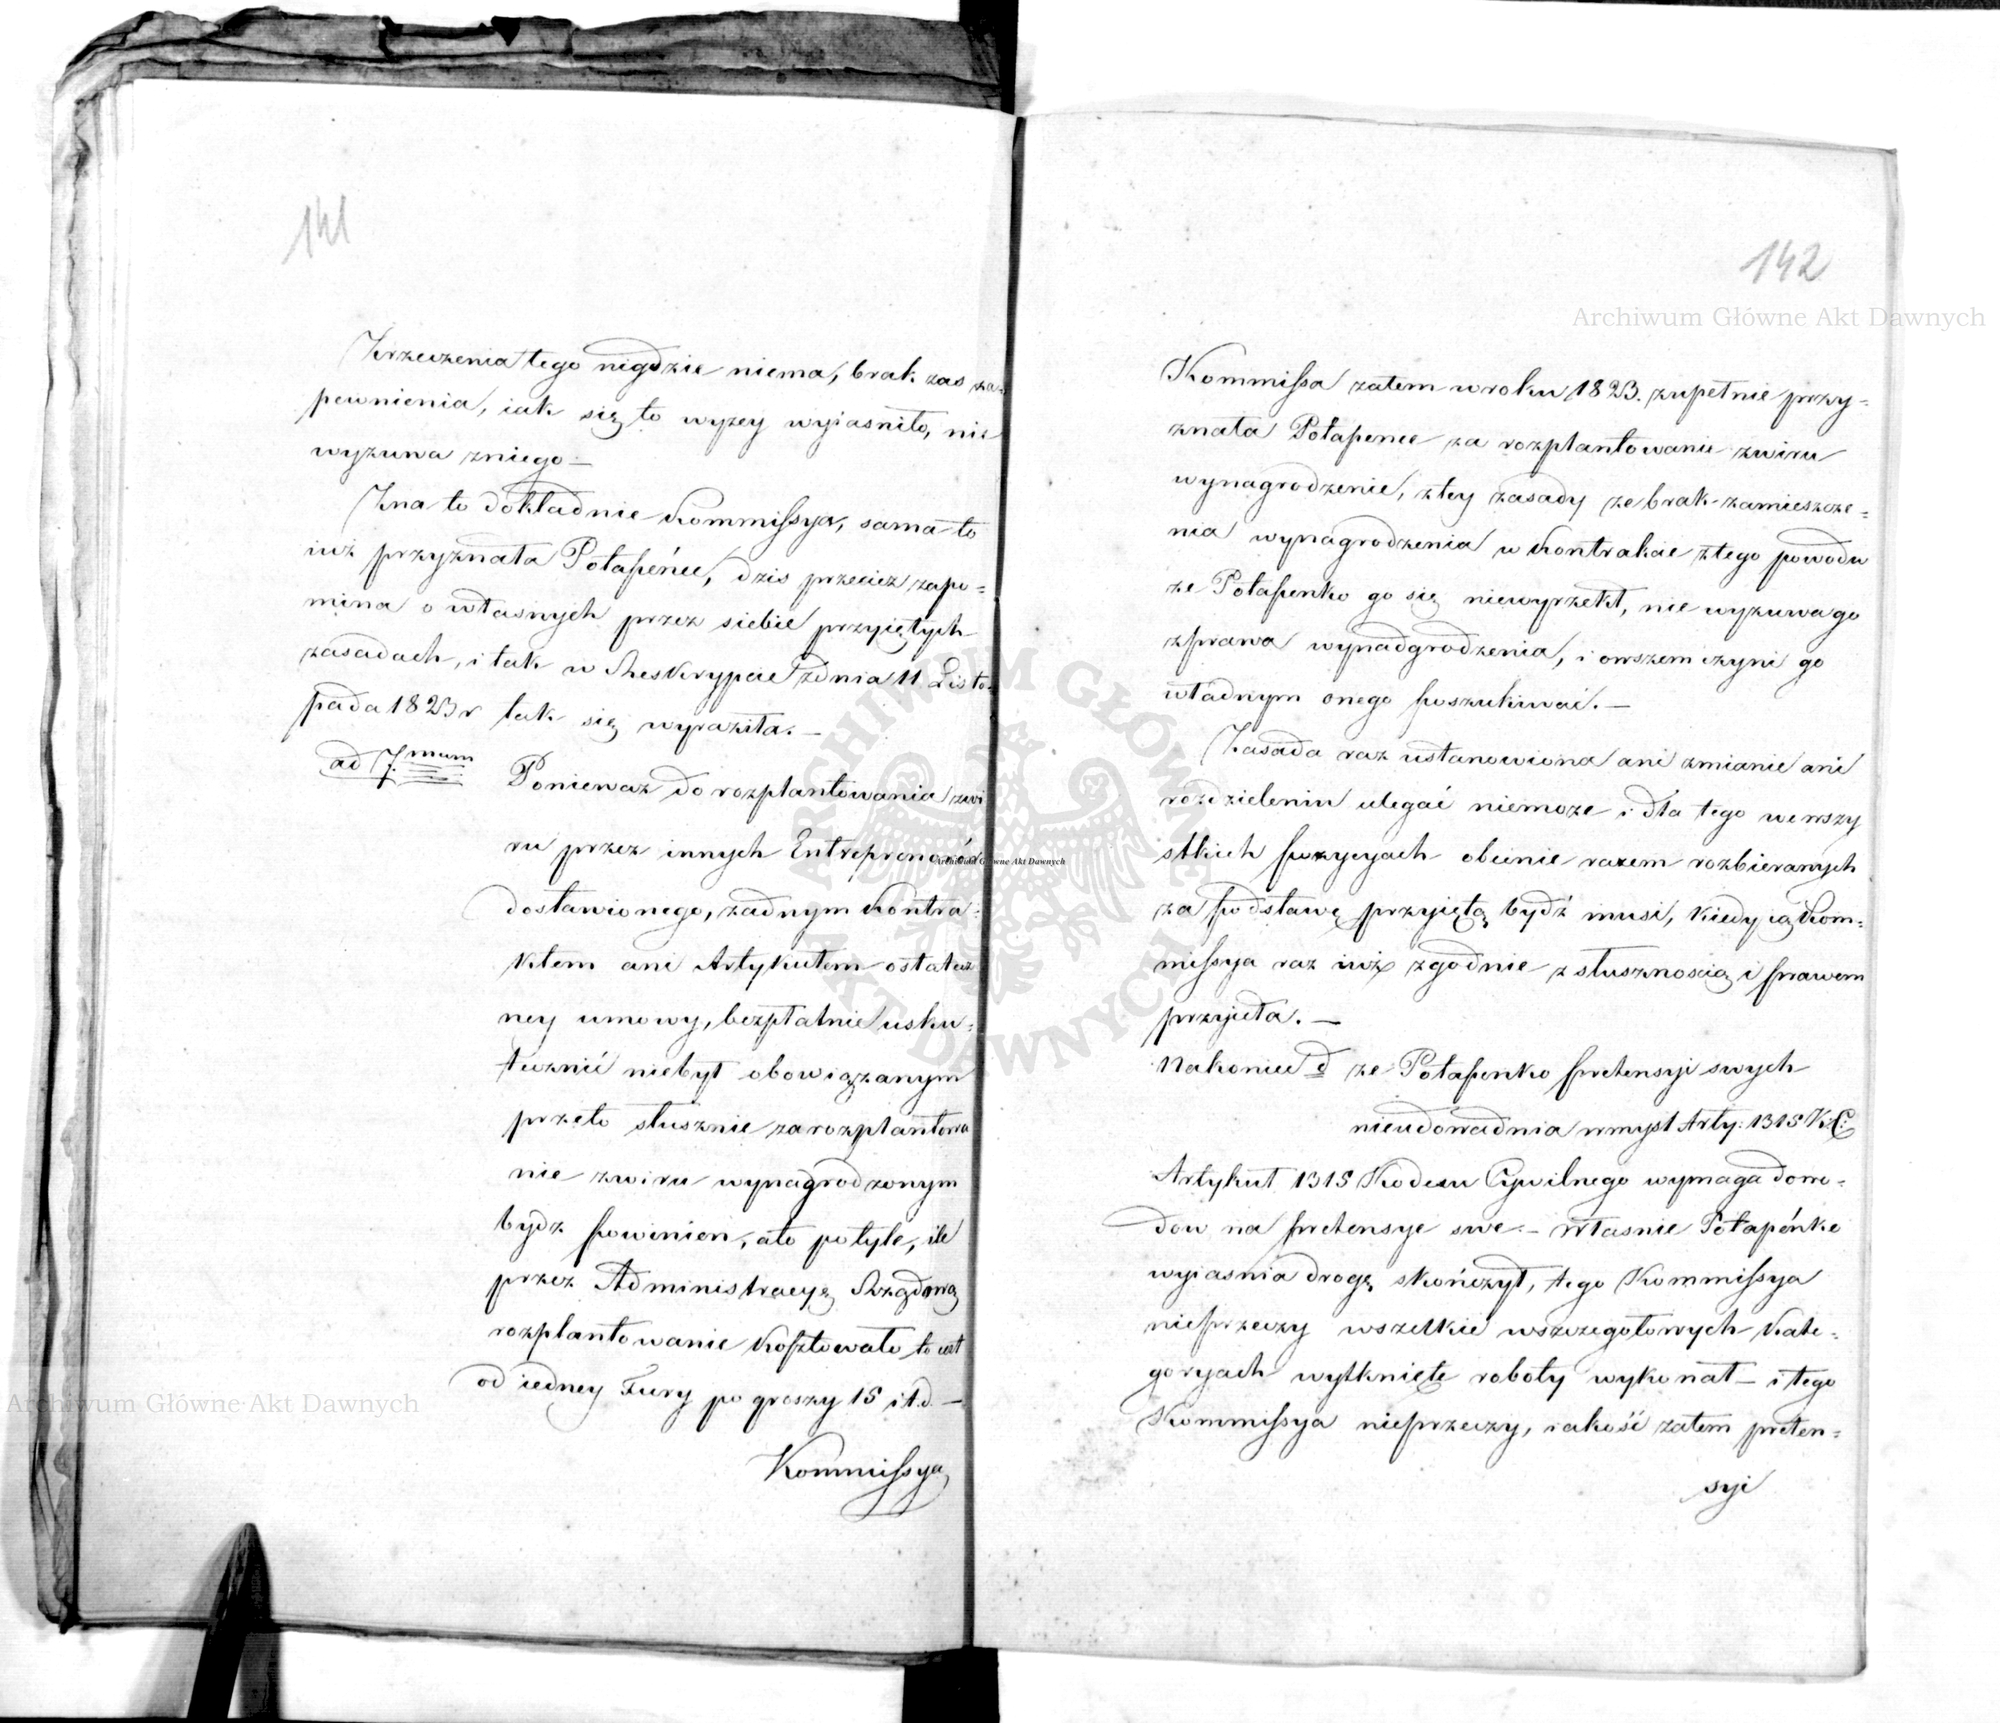 141
Zrzeczenia tego nigdzie niema, brak zas za=
pewnienia, iak się to wyzey wyiasniło, nie
wyzuwa zniego —
Zna to dokładnie Kommissya, sama to
iuż przyznała Potapénce, dzis przeciez zapo=
mina o własnych przez siebie przyiętych
zasadach, i tak w Reskrypcie zdnia 11 Listo=
pada 1823 r tak się wyraziła. —
ad 7mum
Poniewaz do rozplantowania zwi
ru przez innych Entreprenerów
dostawionego, zadnym Kontra=
ktem ani Artykułem ostatecz
ney umowy, bezpłatnie usku=
tecznić niebył obowiązanym
przeto słusznie za rozplantowa
nie zwiru wynagrodzonym
bydz powinien, ato potyle, ile
przez Administracyę Rządową
rozplantowanie kosztowało to iest
od iedney Fury po groszy 15 i t.d. —
Kommissya
142
Kommissa zatem w roku 1823. zupełnie przy=
znała Potapence za rozplantowanie zwiru
wynagrodzenie, z tey zasady ze brak zamieszcze=
nia wynagrodzenia w Kontrakcie z tego powodu
ze Potapenko go się niewyrzekł, nie wyzuwa go
z prawa wynadgrodzenia, i owszem czyni go
władnym onego poszukiwać. —
Zasada raz ustanowiona ani zmianie ani
rozdzieleniu ulegać niemoze i dla tego we wszy
stkich pozycyach obecnie razem rozbieranych
za podstawę przyiętą bydź musi, kiedy ią Kom=
missya raz iuż zgodnie z słusznoscią i prawem
przyięła. —
Nakoniec d ze Potapenko pretensyi swych
nieudowadnia w mysl Arty: 1315 K.C.
Artykuł 1315 Kodexu Cywilnego wymaga dowo=
dow na pretensye swe. — Własnie Potapénko
wyiasnia drogę skończył, tego Kommissya
nieprzeczy wszelkie wszczegołowych Kate=
goryach wytknięte roboty wykonał — i tego
Kommissya nieprzeczy, iakość zatem preten=
syi
Archiwum Główne Akt Dawnych
Archiwum Główne Akt Dawnych
Archiwum Główne Akt Dawnych
ARCHIWUM GŁÓWNE AKT DAWNYCH